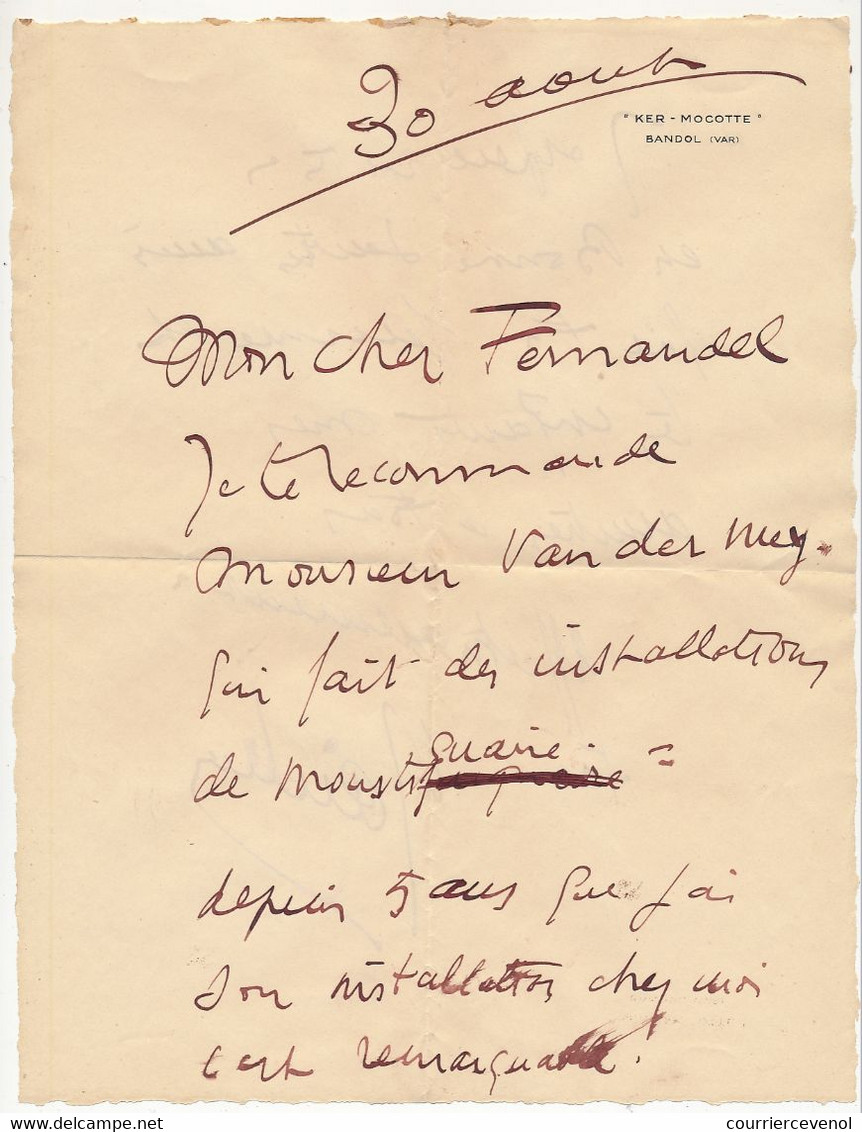 30 aout
" KER - MOCOTTE "
BANDOL (VAR)
Mon cher Fernandel
Je te recommande
monsieur Van der mey.
qui fait des installations
quaire. =
de mousti
depuis 5 ans que j'ai
son installation chez moi
c'est remarquable.
delcampe.net
courriercevenol